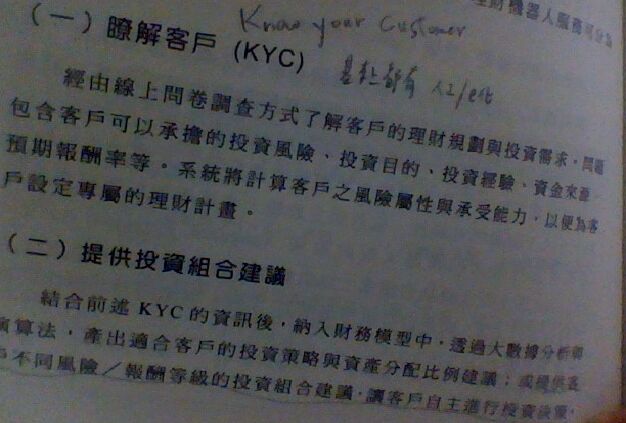 理財機器人服務
（一）瞭解客戶 (KYC) Know your Customer
經由線上問卷調查方式了解客戶的理財規劃與投資需求，問題
包含客戶可以承擔的投資風險、投資目的、投資經驗、資金來源
預期報酬率等。系統將計算客戶之風險屬性與承受能力，以便為客
戶設定專屬的理財計畫。
（二）提供投資組合建議
結合前述 KYC 的資訊後，納入財務模型中，透過大數據分析
演算法，產出適合客戶的投資策略與資產分配比例建議；或提供
不同風險／報酬等級的投資組合建議，讓客戶自主進行投資決策，